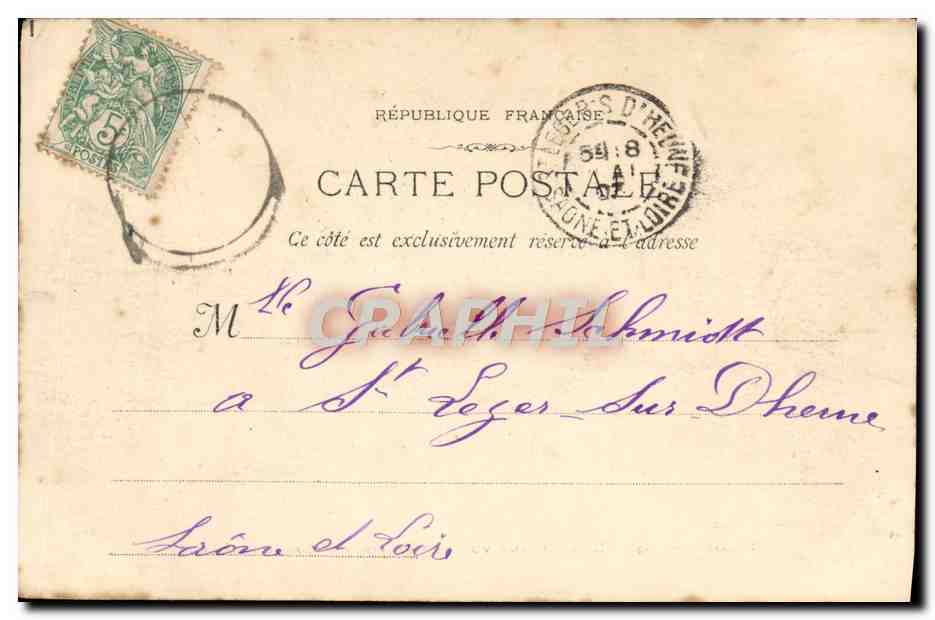 5
POSTES
RÉPUBLIQUE FRANÇAISE
CARTE POSTALE
Ce côté est exclusivement réservé à l'adresse
LEGER-S D'HEUNE
8
SAONE-ET-LOIRE
CRAPHIL
Mlle Gabrielle Schmidt
a St Leger-Sur-Dheune
Saône et Loire